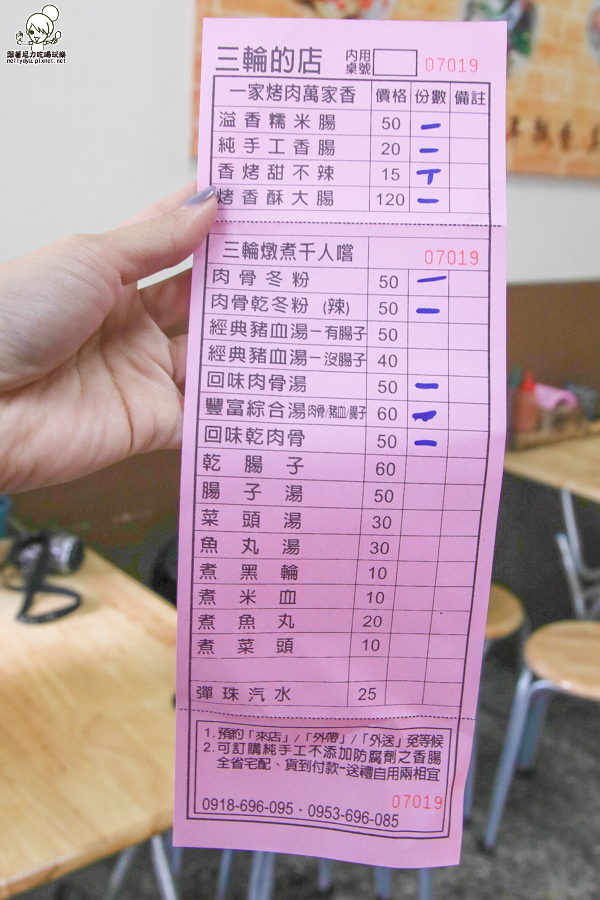 跟著尼力吃喝玩樂
nellydyu.pixnet.net
三輪的店 內用桌號 07019
一家烤肉萬家香 價格 份數 備註
溢香糯米腸 50 一
純手工香腸 20 一
香烤甜不辣 15 丅
烤香酥大腸 120 一
三輪燉煮千人嚐 07019
肉骨冬粉 50 一
肉骨乾冬粉(辣) 50 一
經典豬血湯－有腸子 50
經典豬血湯－沒腸子 40
回味肉骨湯 50 一
豐富綜合湯肉骨/豬血/腸子 60
回味乾肉骨 50 一
乾腸子 60
腸子湯 50
菜頭湯 30
魚丸湯 30
煮黑輪 10
煮米血 10
煮魚丸 20
煮菜頭 10
彈珠汽水 25
1.預約「來店」/「外帶」/「外送」免等候
2.可訂購純手工不添加防腐劑之香腸
全省宅配、貨到付款-送禮自用兩相宜
07019
0918-696-095·0953-696-085